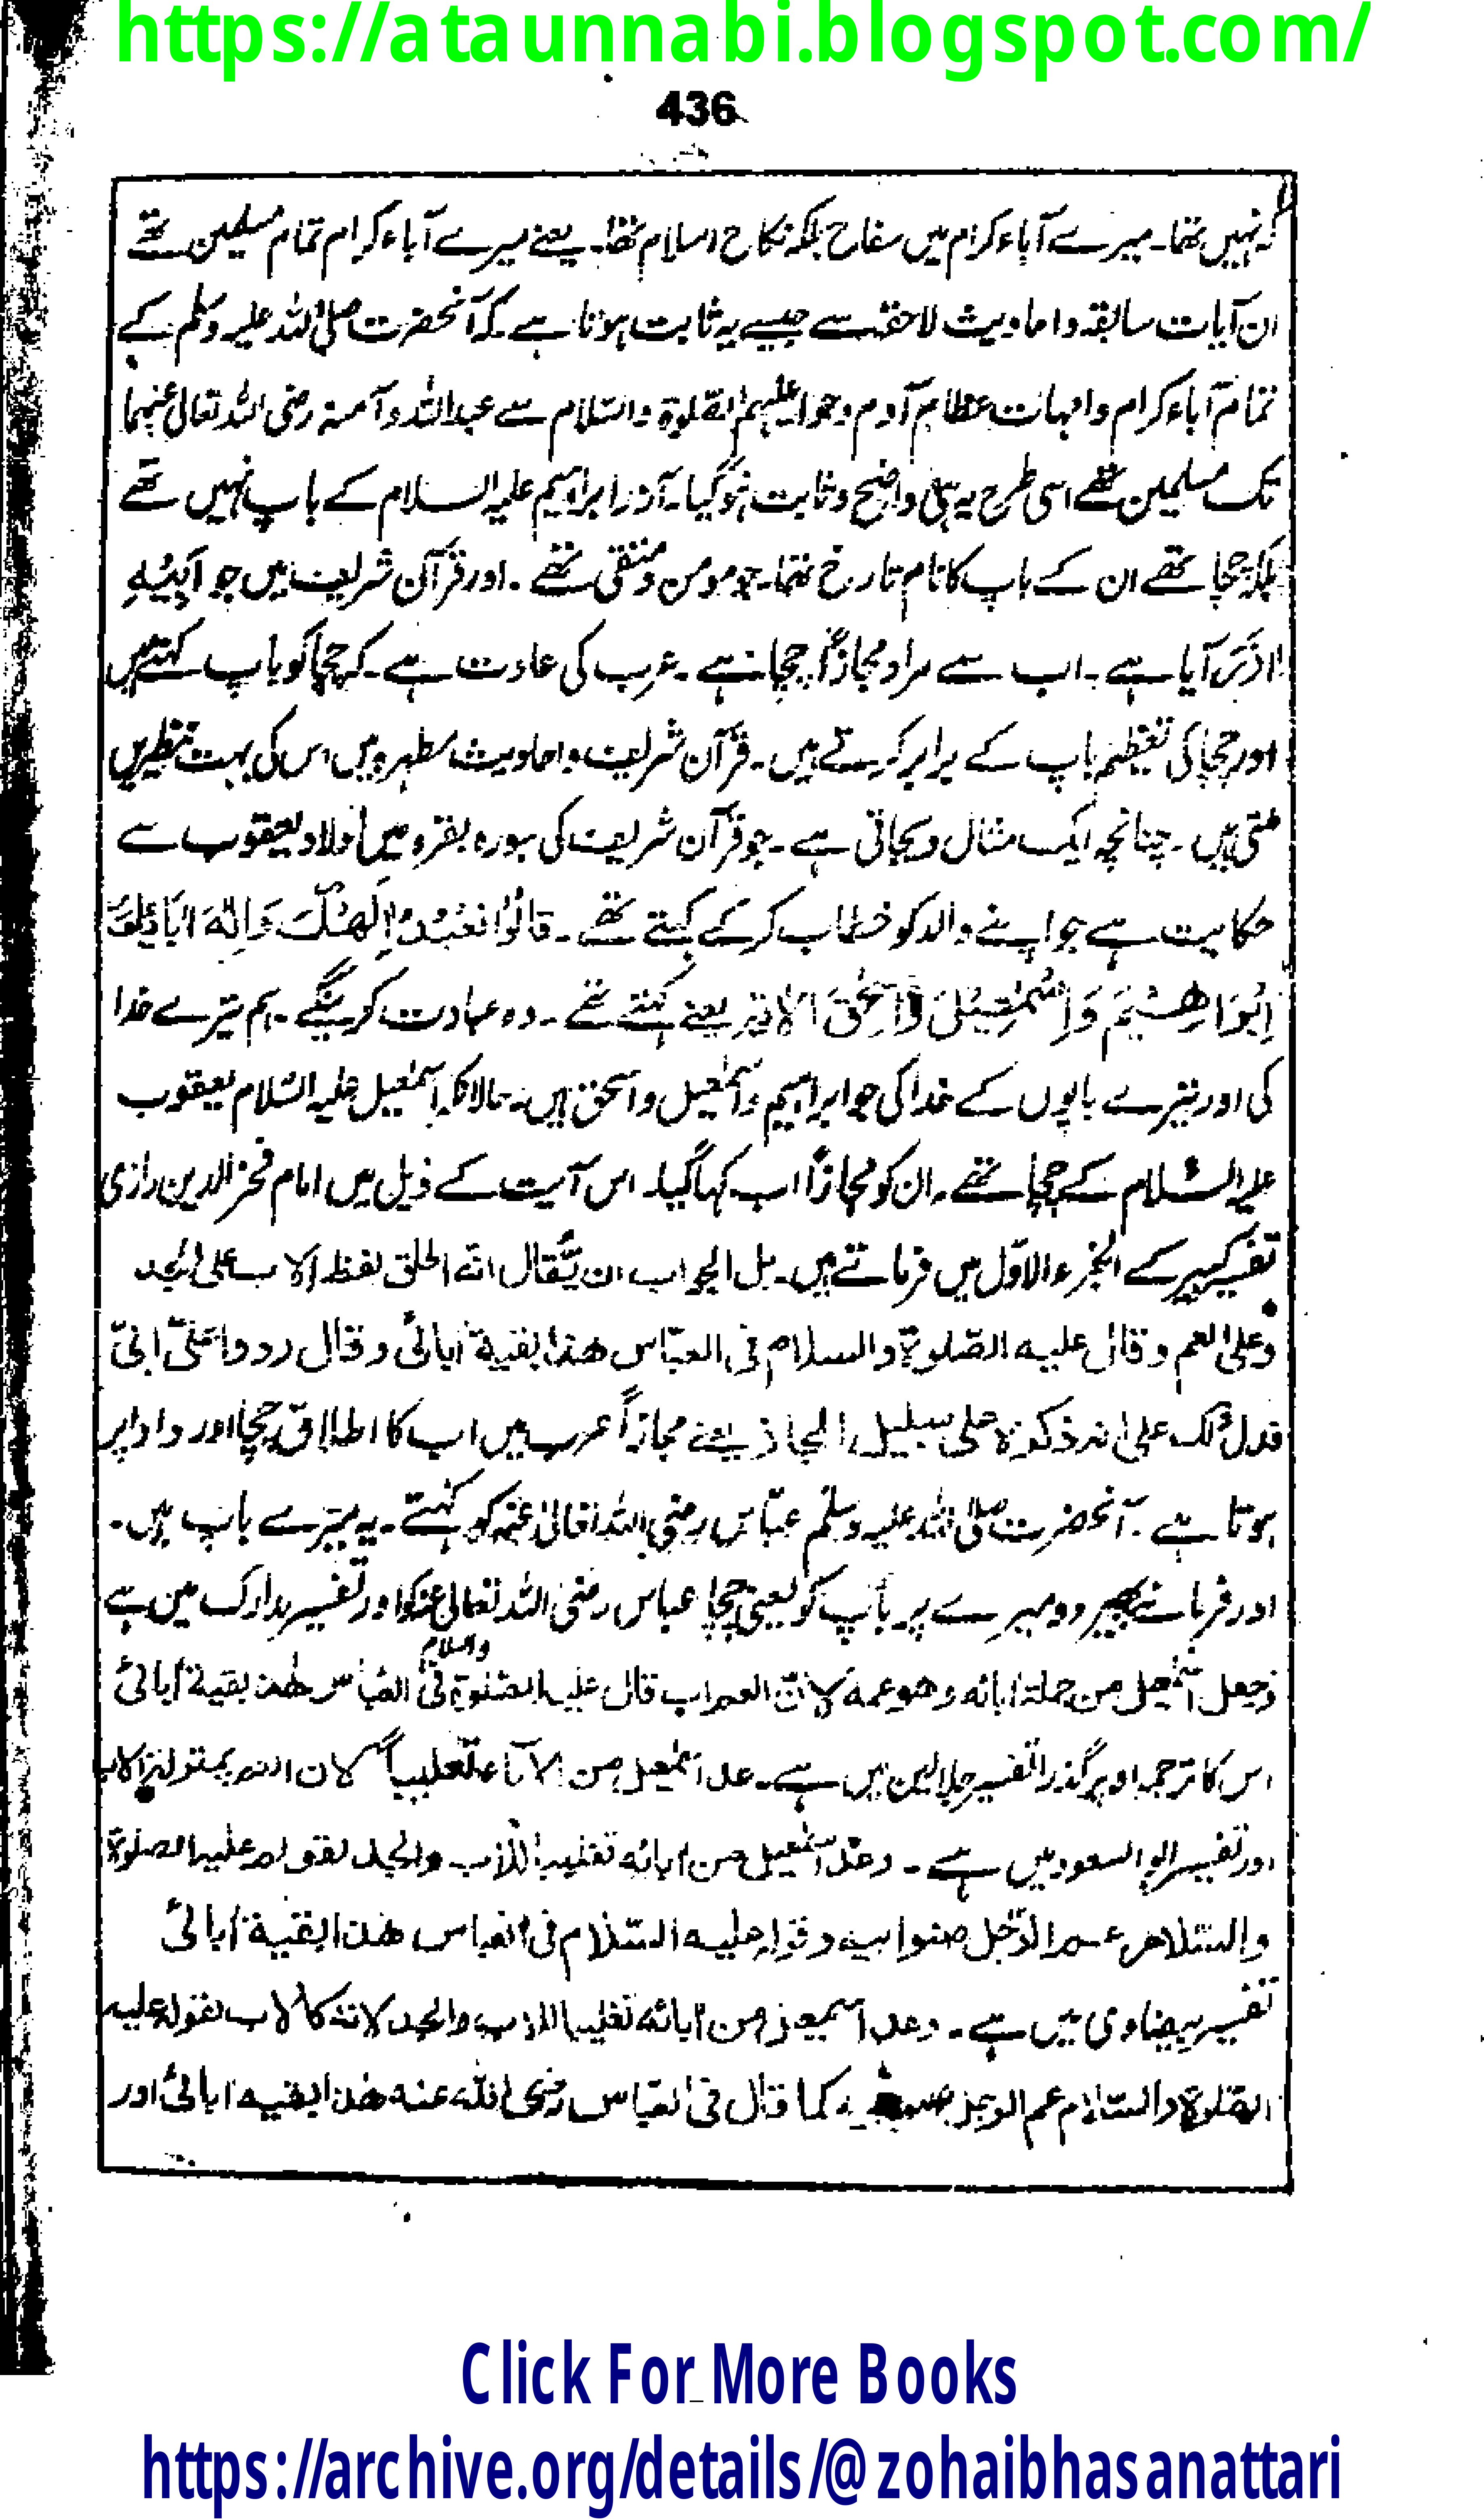 https://ataunnabi.blogspot.com/
436
کہ نہیں تھا۔ میرے آباء کرام میں سفاح بلکہ نکاح اسلام تھا۔ یعنے میرے آباء کرام تمام مسلمین تھے
ان آیات سابقہ و احادیث لاحقہ سے جیسے یہ ثابت ہوتا ہے۔ کہ آنحضرت صلی اللہ علیہ وسلم کے
تمام آباء کرام و امہات عظام آدم و حوا علیہم الصلوۃ والسلام سے عبداللہ و آمنہ رضی اللہ تعالیٰ عنہما
تک مسلمین تھے اسی طرح یہ بھی واضح و ثابت ہوگیا۔ آذر ابراہیم علیہ السلام کے باپ نہیں تھے
بلکہ چچا تھے ان کے باپ کا نام تارخ تھا۔ جو مومن و متقی تھے۔ اور قرآن شریف میں جو اَبِیْہِ
اٰذَرَ آیا ہے۔ اب سے مراد مجازاً چچا ہے۔ عرب کی عادت ہے۔ کہ چچا کو باپ کہتے ہیں
اور چچا کی تعظیم باپ کے برابر کرتے ہیں۔ قرآن شریف و احادیث مطہرہ میں اس کی بہت نظیریں
ملتی ہیں۔ چنانچہ ایک مثال دیجاتی ہے۔ جو قرآن شریف کی سورہ بقرہ میں اولاد یعقوب سے
حکایت ہے جو اپنے والد کو خطاب کرکے کہتے تھے۔ قَالُوْا نَعْبُدُ اِلٰھَكَ وَاِلٰهَ اٰبَآئِكَ
اِبْرَاھِیْمَ وَاِسْمٰعِیْلَ وَاِسْحٰقَ الاٰیۃ یعنے کہتے تھے۔ وہ عبادت کرینگے۔ ہم تیرے خدا
کی اور تیرے باپوں کے خدا کی جو ابراہیم و اسمٰعیل و اسحٰق ہیں۔ حالانکہ اسمٰعیل علیہ السلام یعقوب
علیہ السلام کے چچا تھے۔ ان کو مجازاً اب کہا گیا۔ اس آیت کے ذیل میں امام فخر الدین رازی
تفسیر کبیر کے الجزء الاوّل میں فرماتے ہیں۔ بل الجواب ان یُّقال انہ اطلق لفظ الاب علی الجد
وعلی العم وقال علیہ الصّلوۃ والسلام فی العبّاس ھذا بقیۃ اٰبائی وقال ردوا عَلَیَّ ابیّ
فدل ذلك علی انہ ذکرہ علی سبیل المجاز یعنے مجازاً عرب میں اب کا اطلاق چچا اور دادا پر
ہوتا ہے۔ آنحضرت صلی اللہ علیہ وسلم عبّاس رضی اللہ تعالیٰ عنہ کو کہتے۔ یہ میرے باپ ہیں۔
اور فرماتے پھیر دو میرے پر باپ کو یعنی چچا عباس رضی اللہ تعالیٰ عنہ کو اور تفسیر مدارک میں ہے
وجعل اسمٰعیل من جملۃ اٰبائہ وھو عمہ لانّ العم اب قال علیہ الصّلوۃ والسلام فی العبّاس ھذا بقیۃ اٰبائی
اس کا ترجمہ اوپر گذرا تفسیر جلالین میں ہے۔ عد اسمٰعیل من الاٰباء تغلیباً لان العم بمنزلۃ الاب
اور تفسیر ابو السعود میں ہے۔ وعدّ اسمٰعیل من اٰبائہ تغلیباً للاب والجد لقولہ علیہ الصلوۃ
والسّلام عم الرّجل صنو ابیہ وقولہ علیہ السّلام فی العباس ھذا بقیۃ اٰبائی
تفسیر بیضاوی میں ہے۔ وعد اسمٰعیل من اٰبائہ تغلیبا للاب والجد لانہ کالاب لقولہ علیہ
الصّلوۃ والسّلام عم الرجل صنو ابیہ کما قال فی العبّاس رضی اللہ عنہ ھذا بقیۃ اٰبائی اور
Click For More Books
https://archive.org/details/@zohaibhasanattari